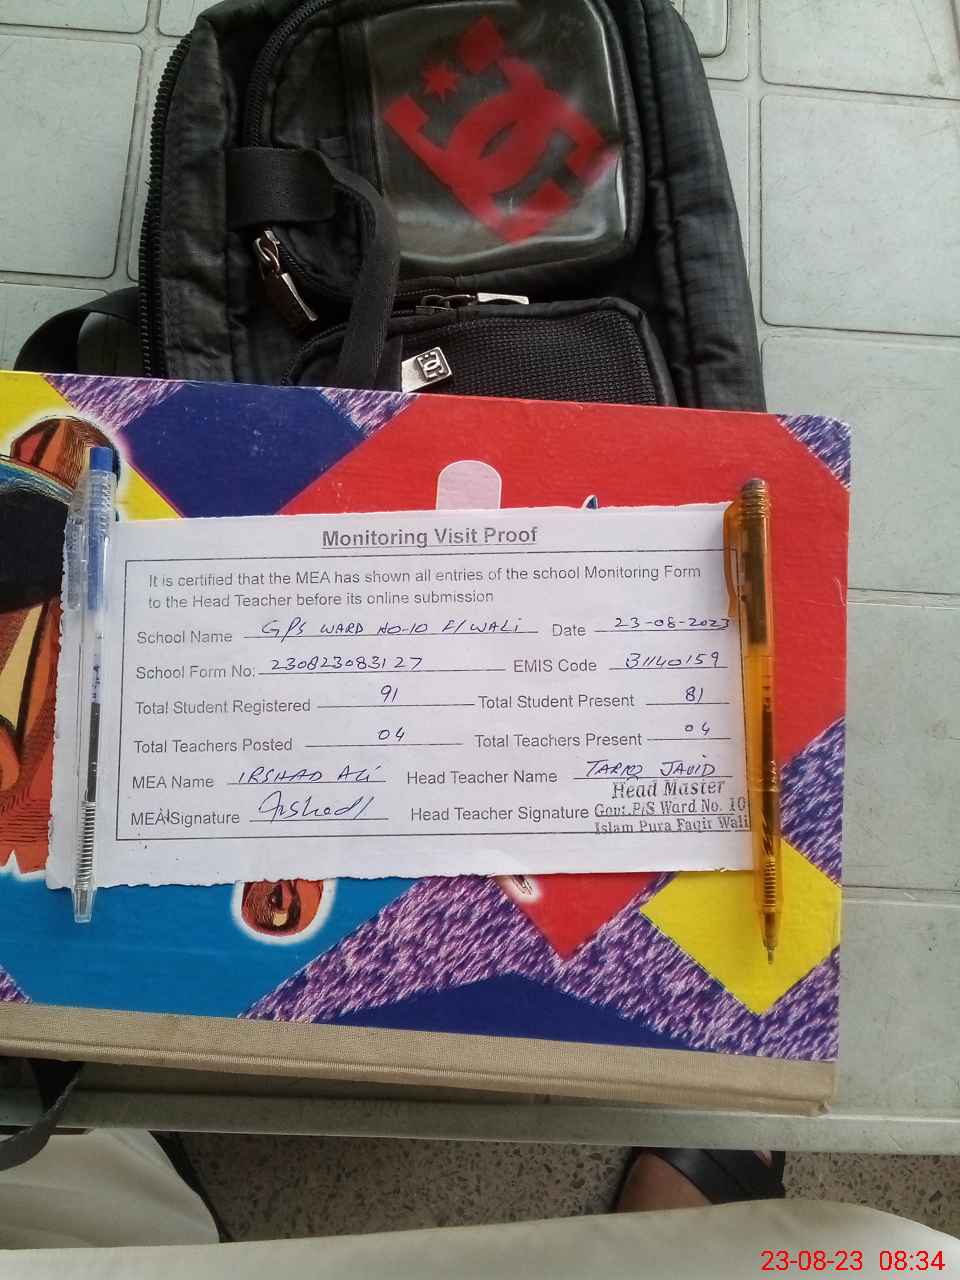 Monitoring Visit Proof
It is certified that the MEA has shown all entries of the school Monitoring Form
to the Head Teacher before its online submission
School Name GPS WARD NO-10 F/WALI Date 23-08-2023
School Form No: 230823083127 EMIS Code 31140159
Total Student Registered 91 Total Student Present 81
Total Teachers Posted 04 Total Teachers Present 04
MEA Name IRSHAD ALI Head Teacher Name TARIQ JAVID
MEA Signature Irshad Head Teacher Signature
Head Master
Govt.P/S Ward No. 10
Islam Pura Faqir Wali
23-08-23 08:34